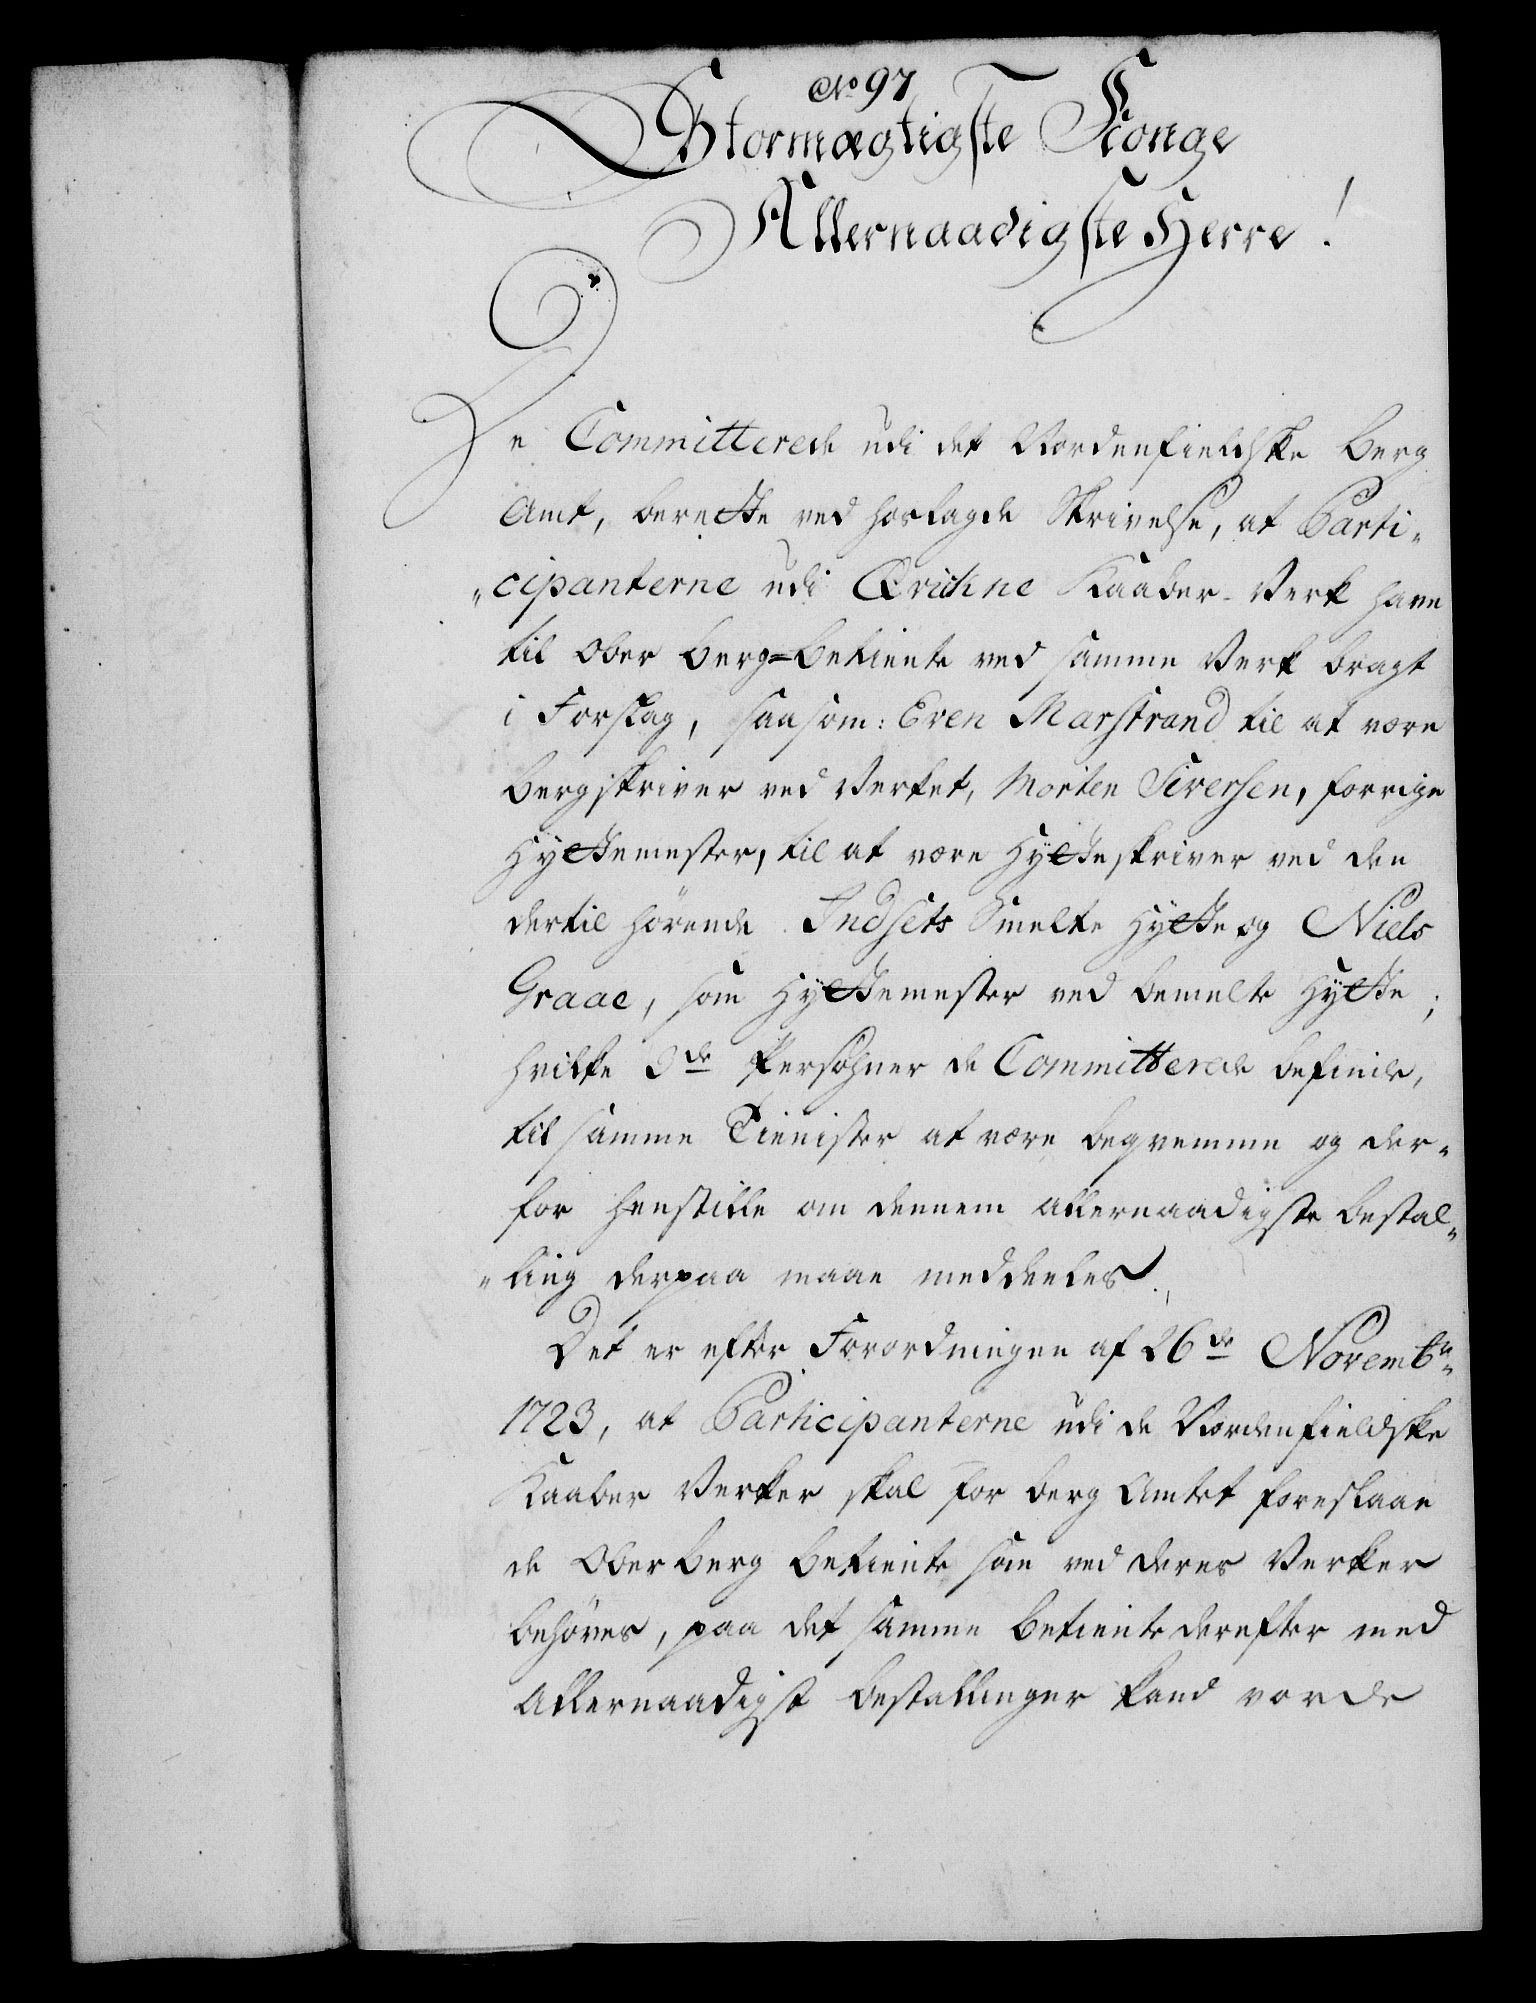 No 97
Stormægtigste Konge
Allernaadigste Herre!
De Committerede udi det Nordenfieldske Berg
Amt, berette ved hoslagde Skrivelse, at Parti„
„cipanterne udi Qvichne Kaaber-Verk have
til Ober Berg=Betiente ved samme Verk bragt
i Forslag, saasom: Even Marstrand til at være
Bergskriver ved Verket, Morten Siversen, forrige
Hyttemester, til at være Hytteskriver ved den
dertil hörende Indsets Smelte Hytte og Niels
Graae, som Hyttemester ved bemelte Hytte;
hvilke 3de Persohner de Committerede befinde,
til samme Tienister at være beqvemme og der„
for henstille om dennem allernaadigste Bestal„
„ling derpaa maae meddeeles.
Det er efter Forordningen af 26de Novembr
1723, at Participanterne udi de Nordenfieldske
Kaaber Verker skal for Berg Amtet foreslaae
de Ober Berg Betiente som ved deres Verker
behöves, paa det samme Betiente derefter med
Allernaadigst Bestallinger kand vorde